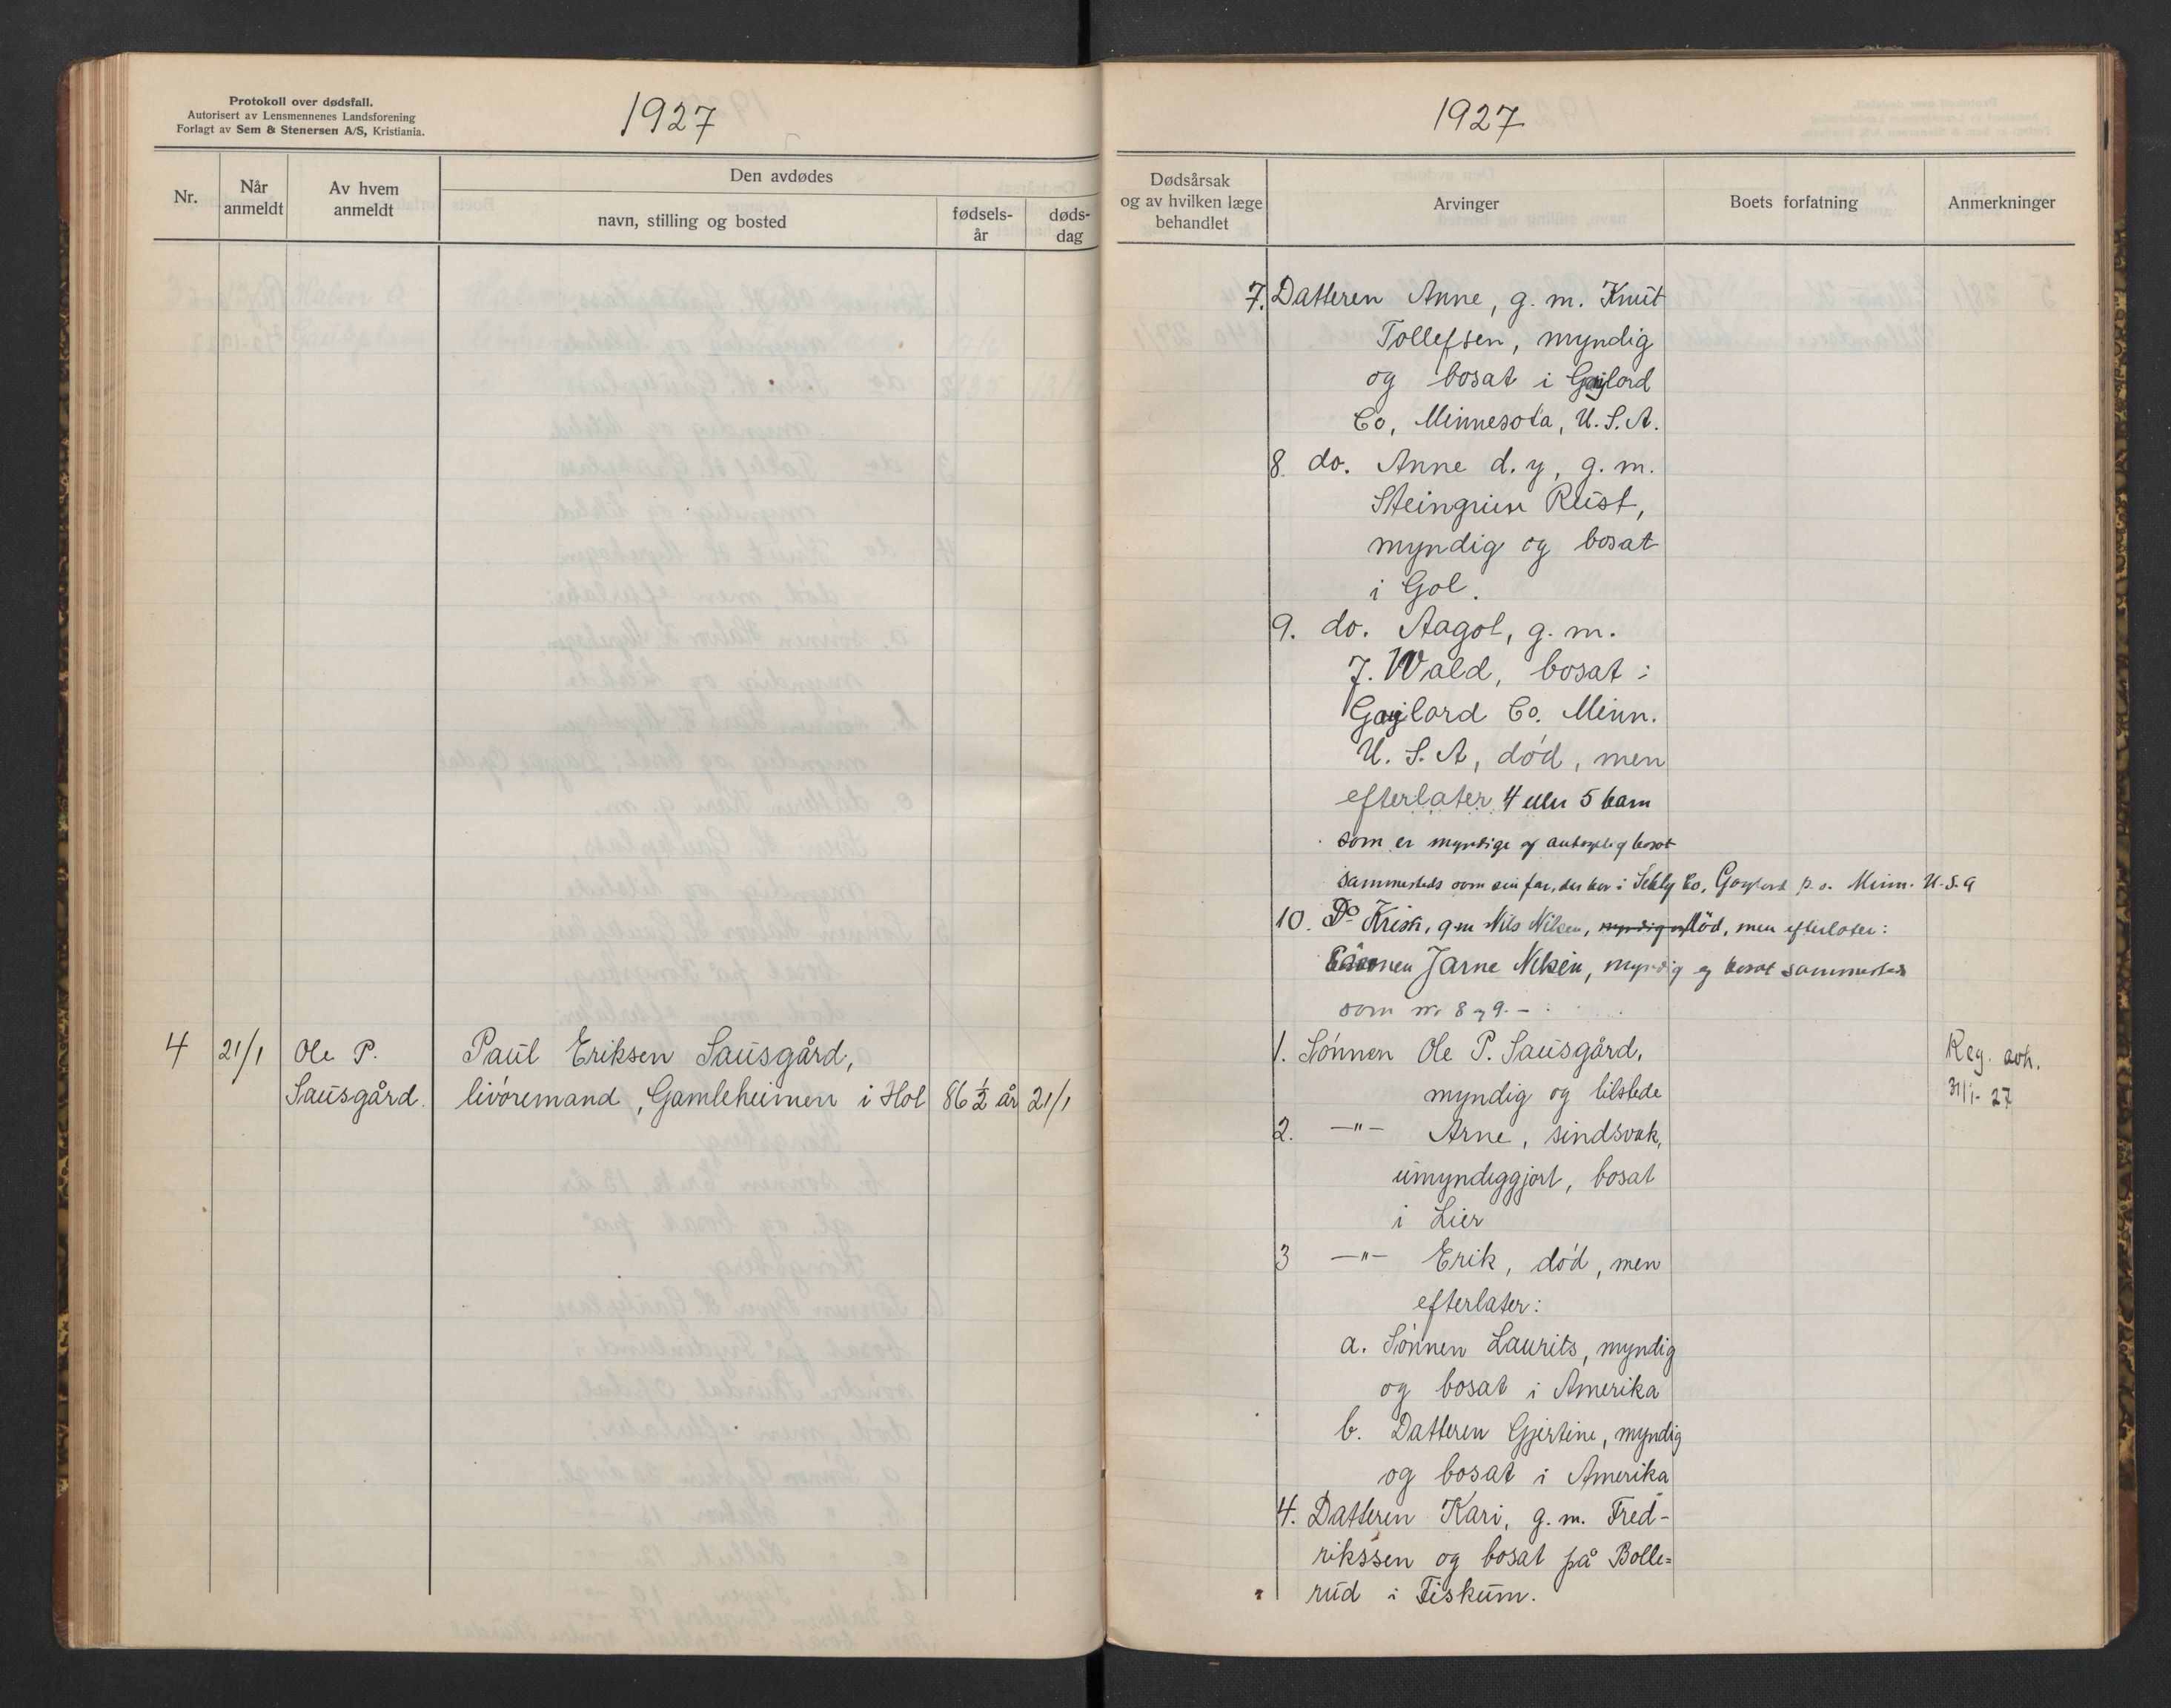 Protokoll over dødsfall.
Autorisert av Lensmennenes Landsforening
Forlagt av Sem & Stenersen A/S, Kristiania.
1927
Nr.
Når anmeldt
Av hvem anmeldt
Den avdødes
navn, stilling og bosted
fødsels-år
døds-dag
4 21/1 Ole P. Paul Eriksen Sausgård,
Sausgård. livøremand, Gamleheimen i Hol 86 ½ år 21/1
1927
Dødsårsak
og av hvilken læge
behandlet
Arvinger
Boets forfatning
Anmerkninger
7. Datteren Anne, g. m. Knut
Tollefsen, myndig
og bosat i Gaylord
Co, Minnesota, U.S.A.
8. do. Anne d. y, g. m.
Steingrim Rust,
myndig og bosat
i Gol.
9. do. Aagot, g. m.
J. Wald, bosat i
Gaylord Co. Minn.
U. S. A, død, men
efterlater 4 eller 5 barn
som er myndige og antagelig bosat
sammesteds som sin far, der bor i Co, Gaylord p. o. Minn. U.S.A
10. Do Kristi, gm Nils Nilsen, myndig og død, men efterlater:
Sønnen Jarne Nilsen, myndig og bosat sammesteds
som nr 8 og 9. -
1. Sønnen Ole P. Sausgård, Reg. avh.
myndig og tilstede 31/1- 27
2. -"- Arne, sindsvak,
umyndiggjort, bosat
i Lier
3 -"- Erik, død, men
efterlater:
a. Sønnen Laurits, myndig
og bosat i Amerika
b. Datteren Gjertine, myndig
og bosat i Amerika
4. Datteren Kari, g. m. Fred-
rikssen og bosat på Bolle=
rud i Fiskum.